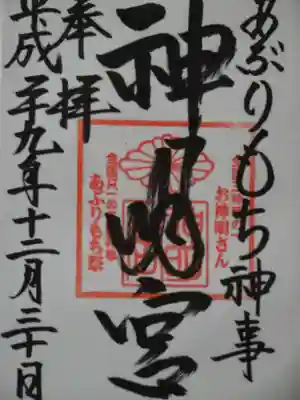 あぶりもち神事
神明宮
奉拝
平成二十九年十二月三十日
お神明さん
あぶりもち祭